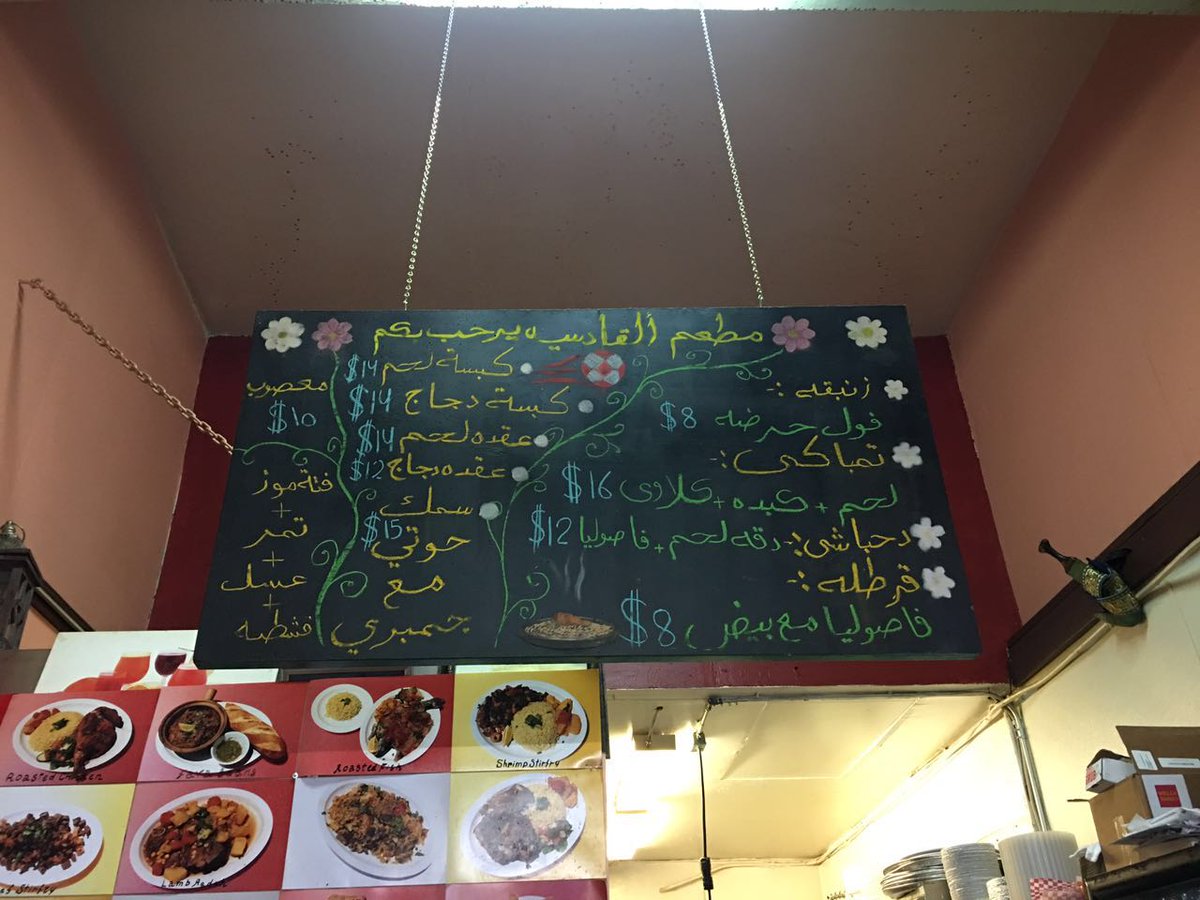 مطعم ألقادسيه يرحب بكم
زنبقه :-
فول حر ضه $8
تمباكي :-
لحم + كبده + كلاوي $16
دحباشي :- دقه لحم + فاصوليا $12
قرطله :-
فاصوليا مع بيض $8
كبسة لحم $14
كبسة دجاج $14
عقده لحم $14
عقده دجاج $12
سمك
حوتي $15
مع
جمبري
معصوب
$10
فته موز
+
تمر
+
عسل
+
قشطه
Roasted Chicken
Fava Beans
Roasted Fish
Shrimp Stirfry
Stirfry
Lamb